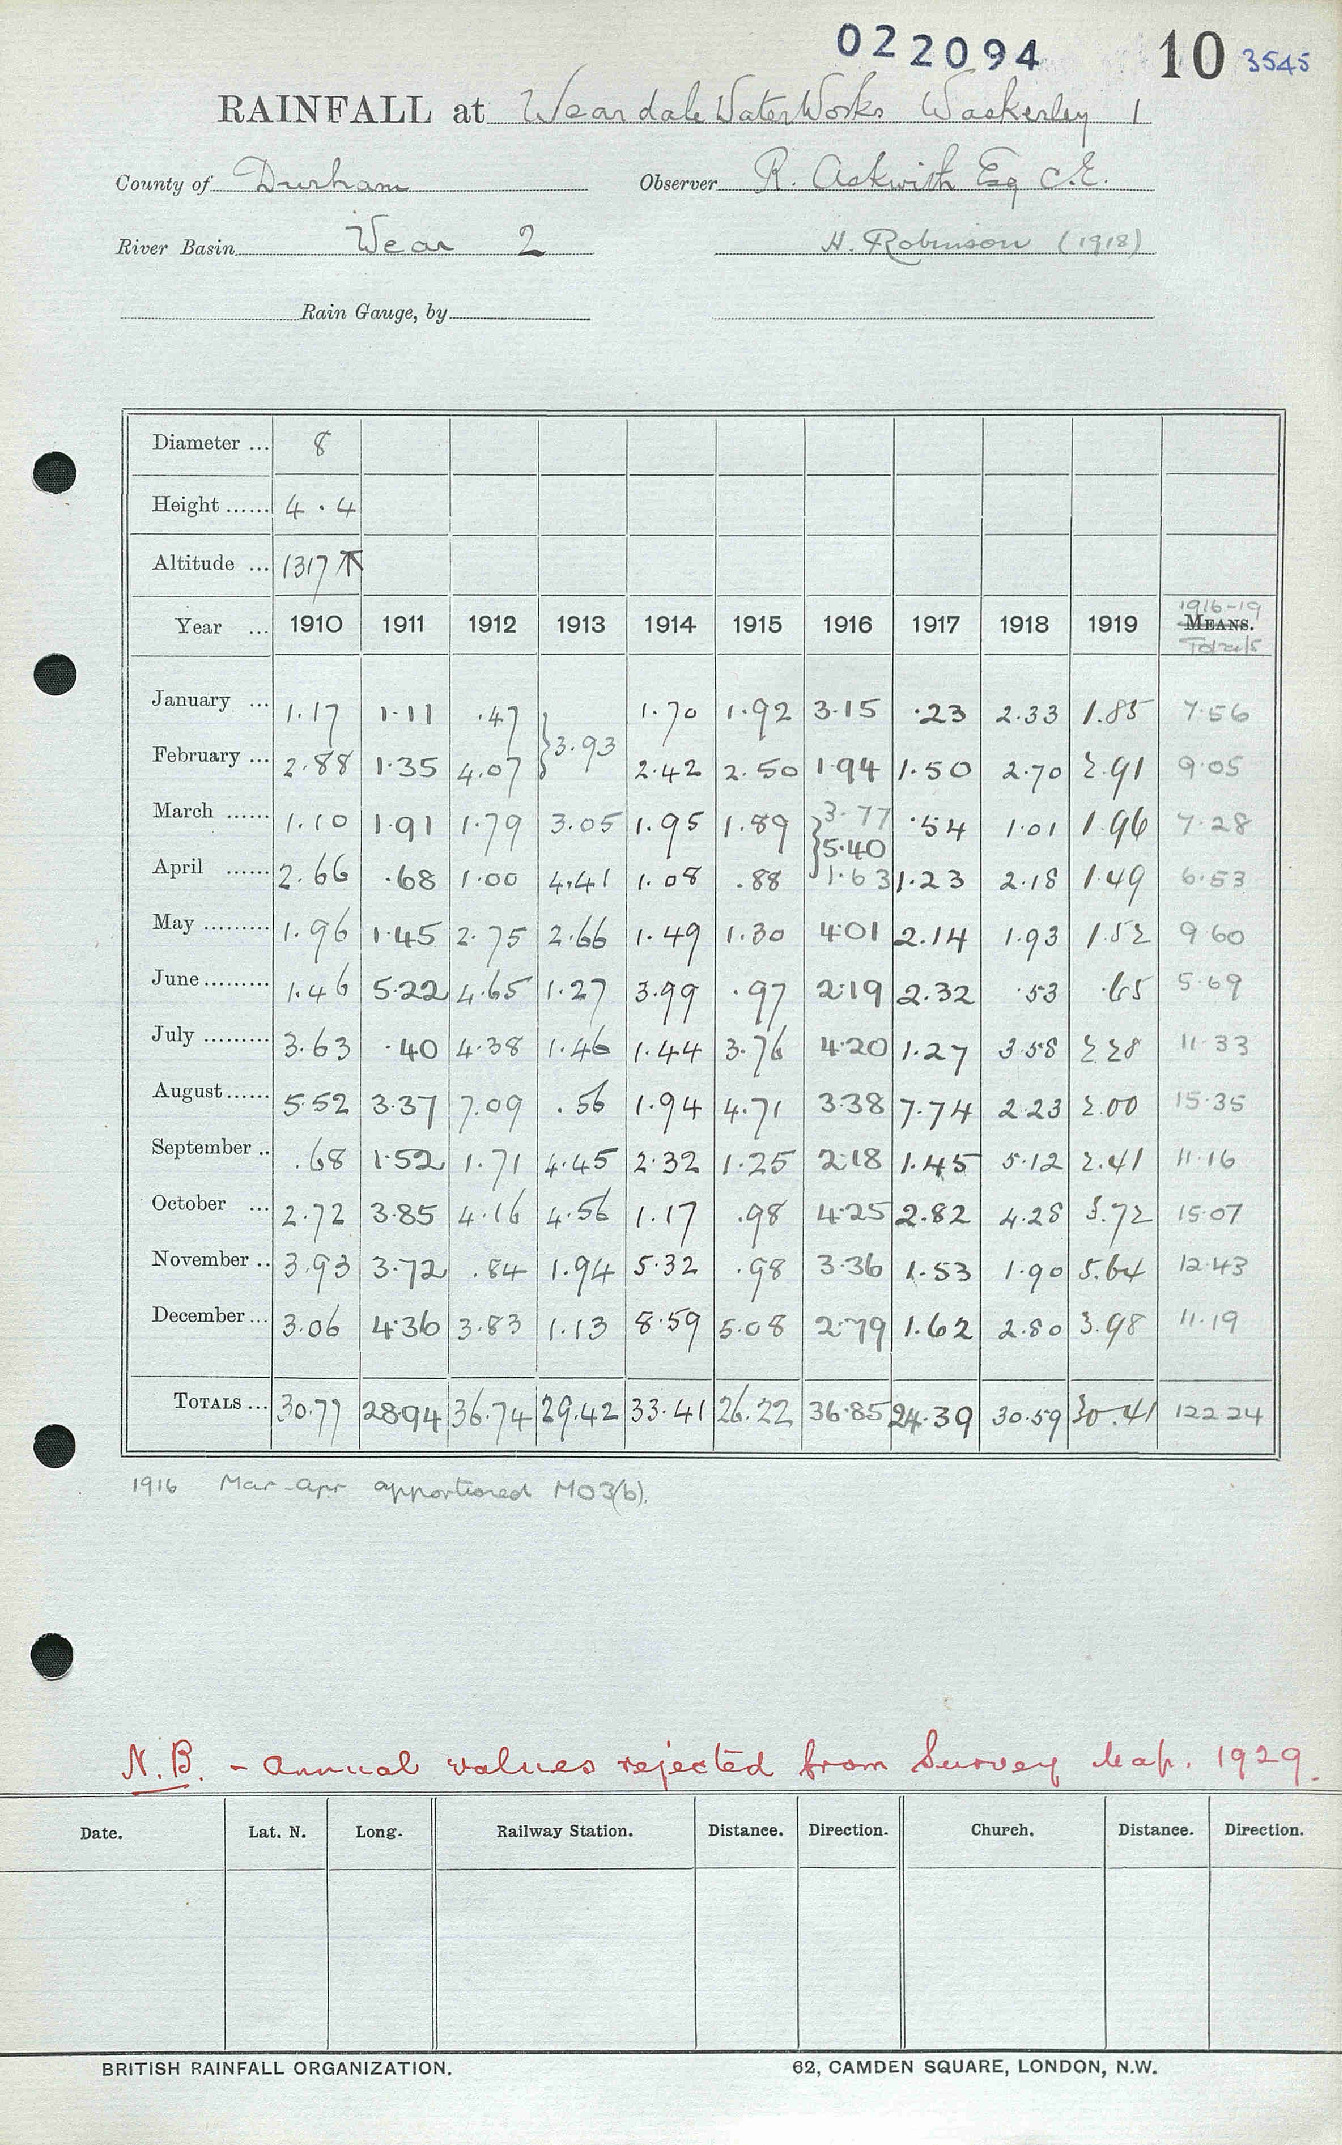 022094 10 3545
RAINFALL at Weardale Water Works Waskerley 1
County of Durham Observer R. Askwith Esq C.E.
River Basin Wear 2 H. Robinson (1918)
Rain Gauge, by
Diameter ... 8
Height ...... 4 . 4
Altitude ... 1317
1916-19
Year ... 1910 1911 1912 1913 1914 1915 1916 1917 1918 1919 MEANS.
Totals
January ... 1.17 1.11 .47 1.70 1.92 3.15 .23 2.33 1.85 7.56
3.93
February ... 2.88 1.35 4.07 2.42 2.50 1.94 1.50 2.70 2.91 9.05
March ...... 1.10 1.91 1.79 3.05 1.95 1.89 3.77 .54 1.01 1.96 7.28
5.40
April ...... 2.66 .68 1.00 4.41 1.08 .88 1.63 1.23 2.18 1.49 6.53
May ......... 1.96 1.45 2.75 2.66 1.49 1.30 4.01 2.14 1.93 1.52 9.60
June ......... 1.46 5.22 4.65 1.27 3.99 .97 2.19 2.32 .53 .65 5.69
July ......... 3.63 .40 4.38 1.46 1.44 3.76 4.20 1.27 3.58 2.28 11.33
August ...... 5.52 3.37 7.09 .56 1.94 4.71 3.38 7.74 2.23 2.00 15.35
September .. .68 1.52 1.71 4.45 2.32 1.25 2.18 1.45 5.12 2.41 11.16
October ... 2.72 3.85 4.16 4.56 1.17 .98 4.25 2.82 4.28 3.72 15.07
November .. 3.93 3.72 .84 1.94 5.32 .98 3.36 1.53 1.90 5.64 12.43
December ... 3.06 4.36 3.83 1.13 8.59 5.08 2.79 1.62 2.80 3.98 11.19
TOTALS ... 30.77 28.94 36.74 29.42 33.41 26.22 36.85 24.39 30.59 30.41 122.24
1916 Mar-Apr apportioned MO3(b).
N.B. - Annual values rejected from Survey Map. 1929.
Date. Lat. N. Long. Railway Station. Distance. Direction. Church. Distance. Direction.
BRITISH RAINFALL ORGANIZATION. 62, CAMDEN SQUARE, LONDON, N.W.